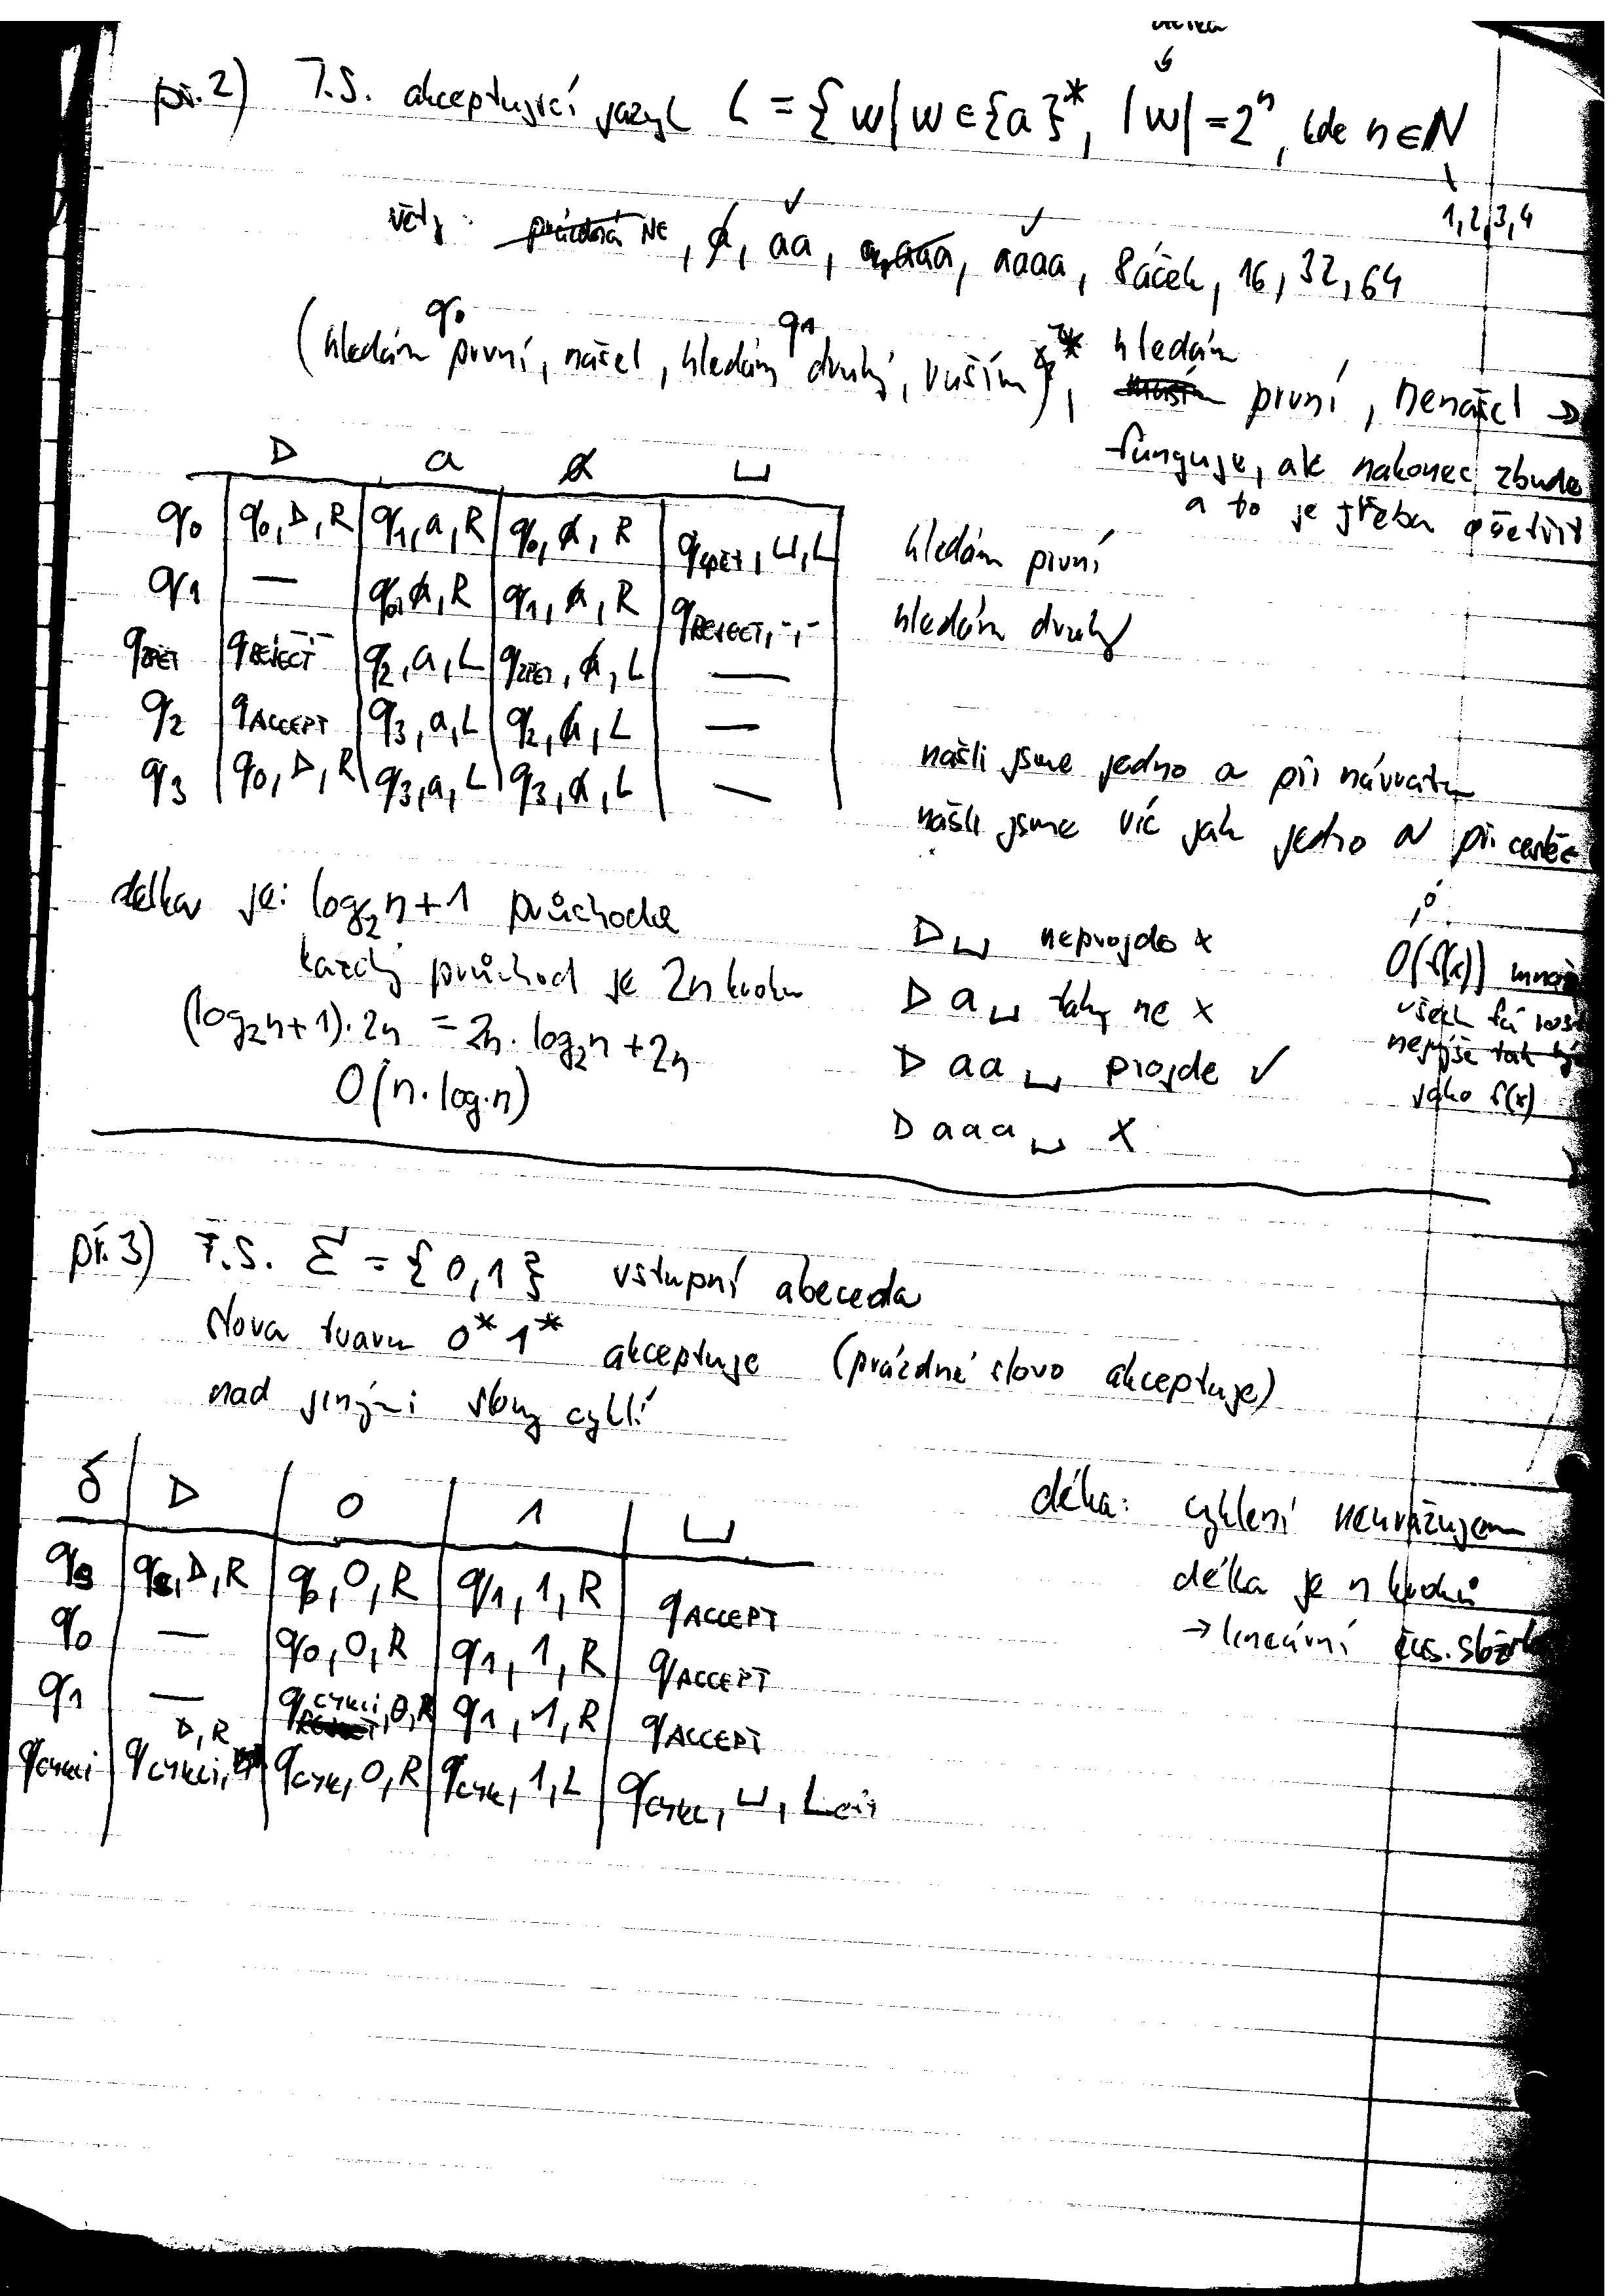 délka
př. 2) T.S. akceptující jazyk L = { w | w ∈ {a}*, |w| = 2ⁿ, kde n ∈ N
1, 2, 3, 4
věty: prázdná NE, a̸, aa ✓, aaa, aaaa ✓, 8 áček, 16, 32, 64
q0 q1
(hledám první, našel, hledám druhý, ruším)*, hledám první, nenašel →
funguje, ale nakonec zbude
a to je třeba ošetřit
▷ a a̸ ⊔
q0 q0, ▷, R q1, a, R q0, a̸, R qZPĚT, ⊔, L hledám první
q1 — q0, a̸, R q1, a̸, R qREJECT, -, - hledám druhý
qZPĚT qREJECT, -, - q2, a, L qZPĚT, a̸, L —
q2 qACCEPT q3, a, L q2, a̸, L — našli jsme jedno a při návratu
q3 q0, ▷, R q3, a, L q3, a̸, L — našli jsme víc jak jedno a při cestě
délka je: log₂n + 1 průchodů
každý průchod je 2n kroků
(log₂n + 1) · 2n = 2n · log₂n + 2n
O(n · log · n)
▷ ⊔ neprojde x
▷ a ⊔ taky ne x
▷ aa ⊔ projde ✓
▷ aaa ⊔ x
"ó"
O(f(x))
všech fcí
nejvýše tak
jako f(x)
př. 3) T.S. Σ = { 0, 1 } vstupní abeceda
slova tvaru 0* 1* akceptuje (prázdné slovo akceptuje)
nad jinými slovy cyklí
δ ▷ 0 1 ⊔
qs qs, ▷, R q0, 0, R q1, 1, R qACCEPT
q0 — q0, 0, R q1, 1, R qACCEPT
q1 — qCYKLI, 0, R q1, 1, R qACCEPT
qCYKLI qCYKLI, ▷, R qCYK, 0, R qCYK, 1, L qCYKL, ⊔, L
délka: cyklení neuvažujem
délka je n kroků
→ lineární čas. složit